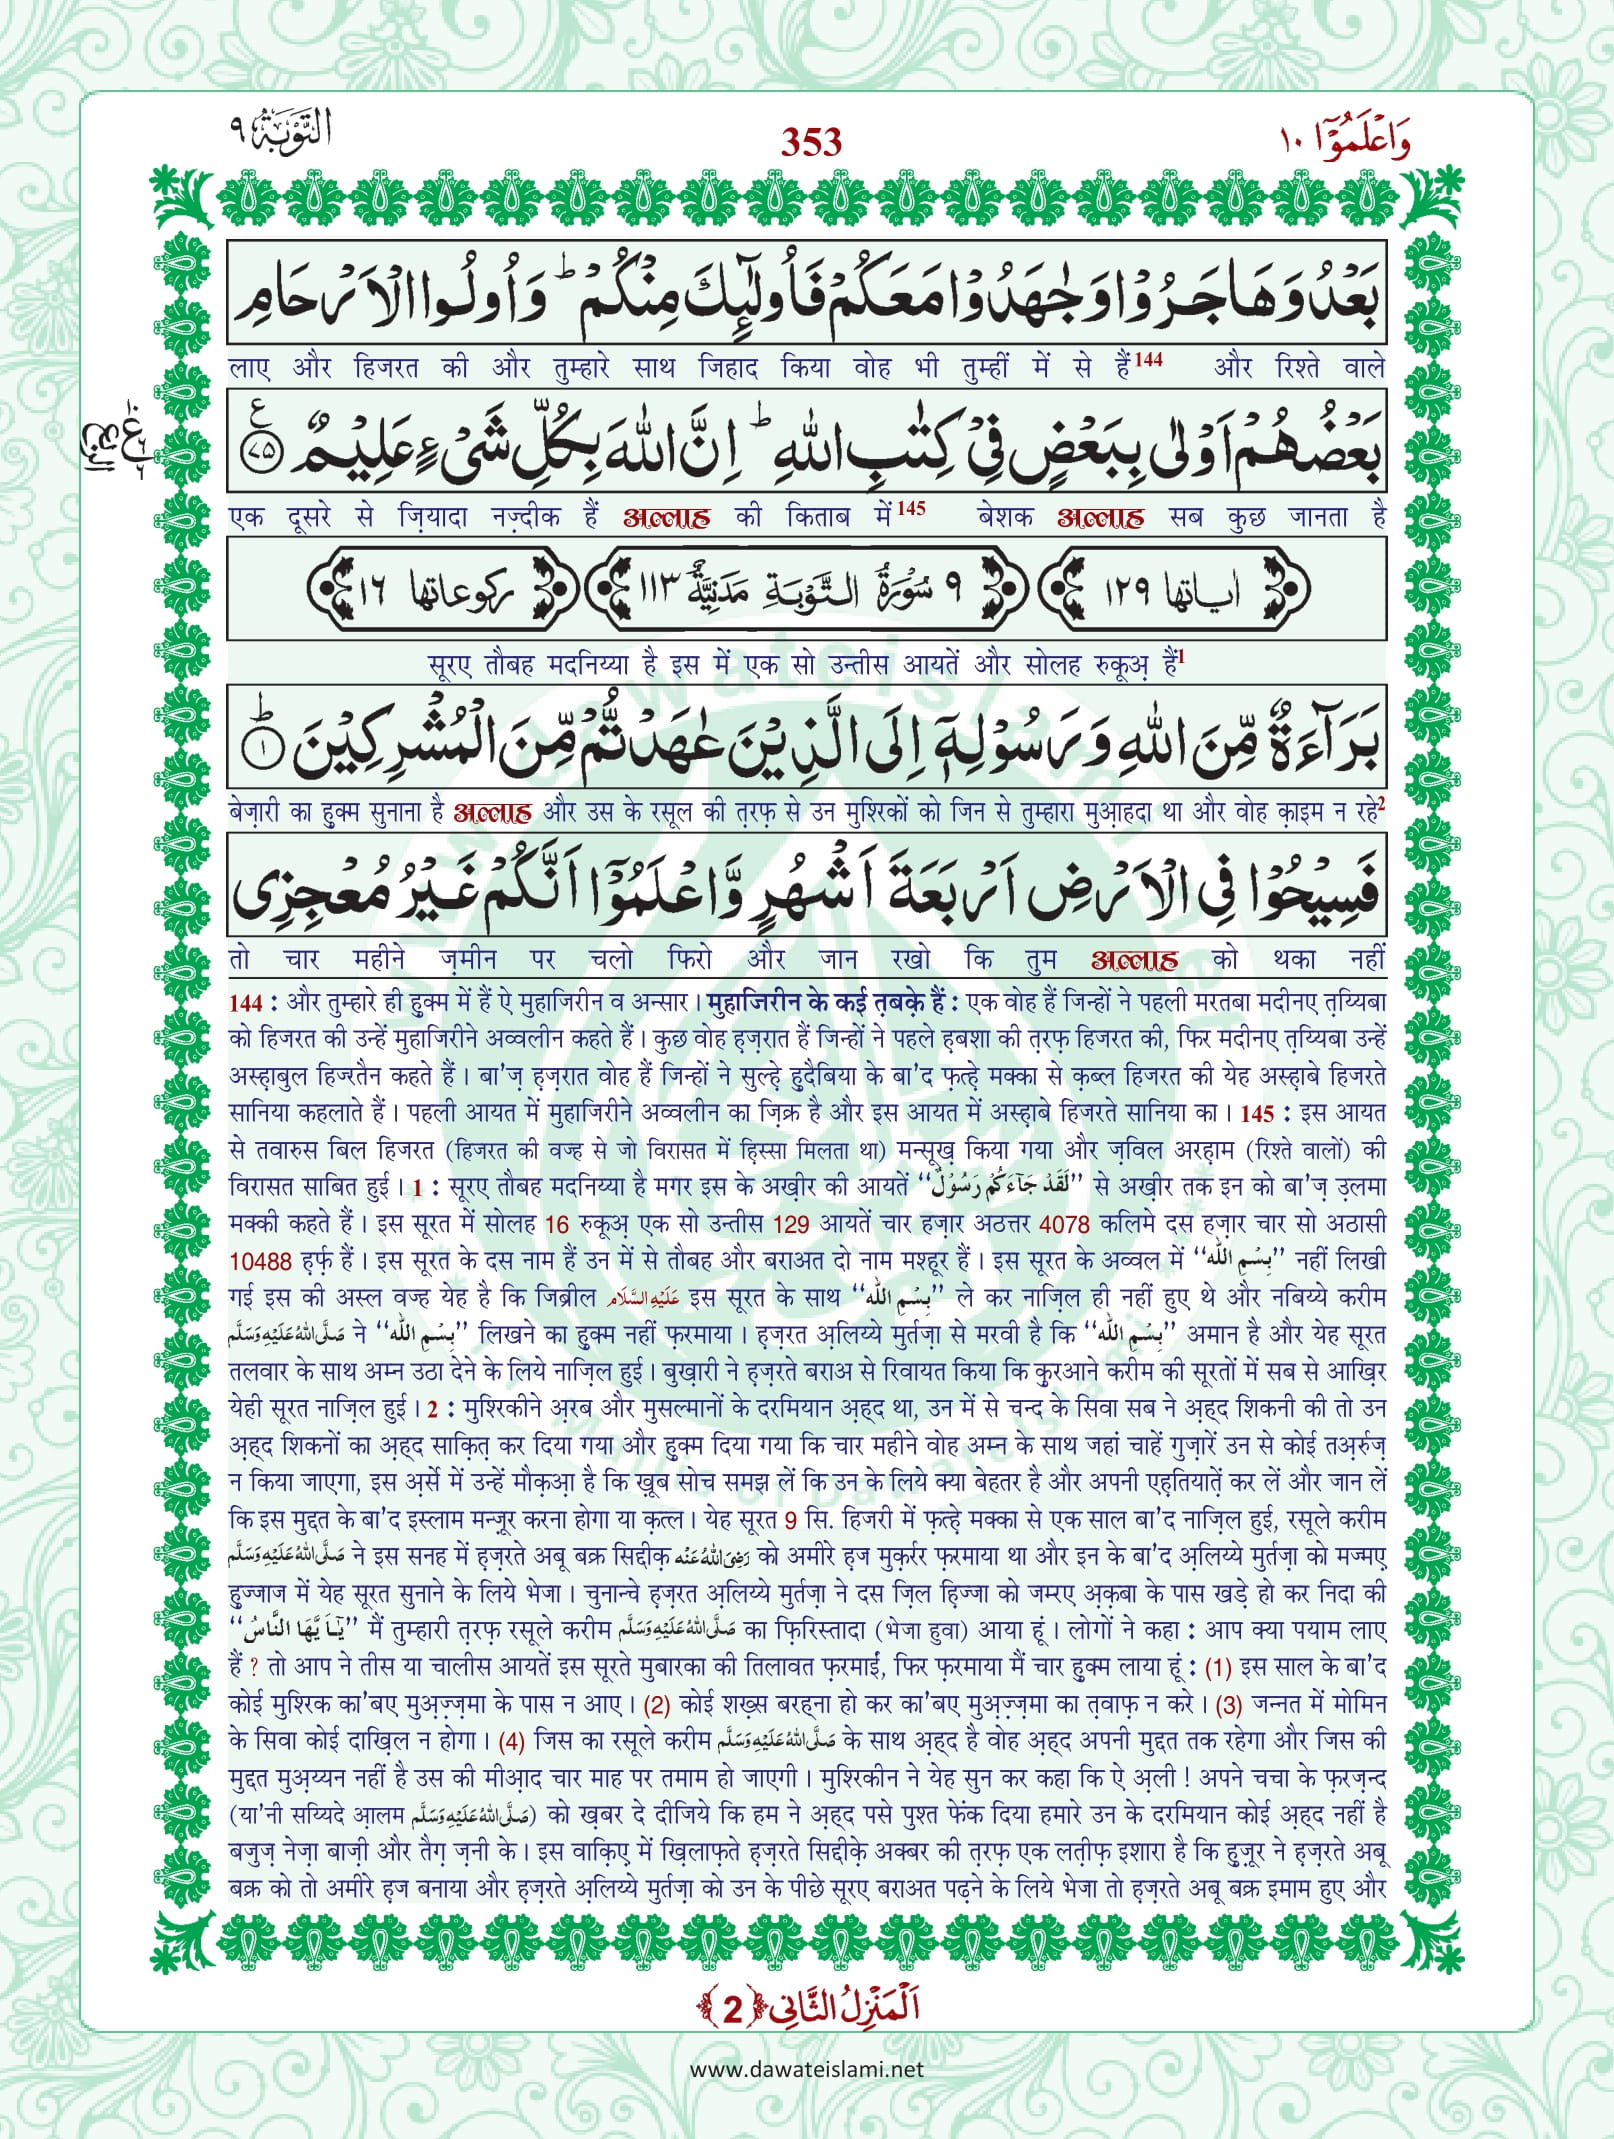 التَّوْبَة ٩
353
وَاعْلَمُوْۤا ١٠
بَعْدُ وَهَاجَرُوْا وَجٰهَدُوْا مَعَكُمْ فَاُولٰٓىٕكَ مِنْكُمْ ؕ وَاُولُوا الْاَرْحَامِ
लाए और हिजरत की और तुम्हारे साथ जिहाद किया वोह भी तुम्हीं में से हैं144 और रिश्ते वाले
بَعْضُهُمْ اَوْلٰى بِبَعْضٍ فِیْ كِتٰبِ اللّٰهِ ؕ اِنَّ اللّٰهَ بِكُلِّ شَیْءٍ عَلِیْمٌ ۧ ٧٥
एक दूसरे से ज़ियादा नज़्दीक हैं अल्लाह की किताब में145 बेशक अल्लाह सब कुछ जानता है
اٰیاتها ١٢٩
٩ سُوْرَةُ التَّوْبَةِ مَدَنِیَّةٌ ١١٣
ركوعاتها ١٦
सूरए तौबह मदनिय्या है इस में एक सो उन्तीस आयतें और सोलह रुकूअ़ हैं1
بَرَآءَةٌ مِّنَ اللّٰهِ وَرَسُوْلِهٖۤ اِلَى الَّذِیْنَ عٰهَدْتُّمْ مِّنَ الْمُشْرِكِیْنَ ؕ ١
बेज़ारी का हुक्म सुनाना है अल्लाह और उस के रसूल की त़रफ़ से उन मुश्रिकों को जिन से तुम्हारा मुआ़हदा था और वोह क़ाइम न रहे2
فَسِیْحُوْا فِی الْاَرْضِ اَرْبَعَةَ اَشْهُرٍ وَّاعْلَمُوْۤا اَنَّكُمْ غَیْرُ مُعْجِزِی
तो चार महीने ज़मीन पर चलो फिरो और जान रखो कि तुम अल्लाह को थका नहीं
144 : और तुम्हारे ही हुक्म में हैं ऐ मुहाजिरीन व अन्सार। मुहाजिरीन के कई त़बक़े हैं : एक वोह हैं जिन्हों ने पहली मरतबा मदीनए त़य्यिबा
को हिजरत की उन्हें मुहाजिरीने अव्वलीन कहते हैं। कुछ वोह ह़ज़रात हैं जिन्हों ने पहले ह़बशा की त़रफ़ हिजरत की, फिर मदीनए त़य्यिबा उन्हें
अस्ह़ाबुल हिज्रतैन कहते हैं। बा'ज़ ह़ज़रात वोह हैं जिन्हों ने सुल्ह़े हुदैबिया के बा'द फ़त्ह़े मक्का से क़ब्ल हिजरत की येह अस्ह़ाबे हिजरते
सानिया कहलाते हैं। पहली आयत में मुहाजिरीने अव्वलीन का ज़िक्र है और इस आयत में अस्ह़ाबे हिजरते सानिया का। 145 : इस आयत
से तवारुस बिल हिजरत (हिजरत की वज्ह से जो विरासत में हिस्सा मिलता था) मन्सूख़ किया गया और ज़विल अरह़ाम (रिश्ते वालों) की
विरासत साबित हुई। 1 : सूरए तौबह मदनिय्या है मगर इस के अख़ीर की आयतें "لَقَدْ جَآءَكُمْ رَسُوْلٌ" से अख़ीर तक इन को बा'ज़ उ़लमा
मक्की कहते हैं। इस सूरत में सोलह 16 रुकूअ़ एक सो उन्तीस 129 आयतें चार हज़ार अठत्तर 4078 कलिमे दस हज़ार चार सो अठासी
10488 ह़र्फ़ हैं। इस सूरत के दस नाम हैं उन में से तौबह और बराअत दो नाम मश्हूर हैं। इस सूरत के अव्वल में "بِسْمِ اللّٰه" नहीं लिखी
गई इस की अस्ल वज्ह येह है कि जिब्रील عَلَيْهِ السَّلَام इस सूरत के साथ "بِسْمِ اللّٰه" ले कर नाज़िल ही नहीं हुए थे और नबिय्ये करीम
صَلَّى اللّٰهُ عَلَيْهِ وَسَلَّم ने "بِسْمِ اللّٰه" लिखने का हुक्म नहीं फ़रमाया। ह़ज़रत अ़लिय्ये मुर्तज़ा से मरवी है कि "بِسْمِ اللّٰه" अमान है और येह सूरत
तलवार के साथ अम्न उठा देने के लिये नाज़िल हुई। बुख़ारी ने ह़ज़रते बराअ से रिवायत किया कि क़ुरआने करीम की सूरतों में सब से आख़िर
येही सूरत नाज़िल हुई। 2 : मुश्रिकीने अ़रब और मुसल्मानों के दरमियान अ़ह्द था, उन में से चन्द के सिवा सब ने अ़ह्द शिकनी की तो उन
अ़ह्द शिकनों का अ़ह्द साक़ित़ कर दिया गया और हुक्म दिया गया कि चार महीने वोह अम्न के साथ जहां चाहें गुज़ारें उन से कोई तअ़र्रुज़
न किया जाएगा, इस अ़र्से में उन्हें मौक़आ़ है कि ख़ूब सोच समझ लें कि उन के लिये क्या बेहतर है और अपनी एह़तियात़ें कर लें और जान लें
कि इस मुद्दत के बा'द इस्लाम मन्ज़ूर करना होगा या क़त्ल। येह सूरत 9 सि. हिजरी में फ़त्ह़े मक्का से एक साल बा'द नाज़िल हुई, रसूले करीम
صَلَّى اللّٰهُ عَلَيْهِ وَسَلَّم ने इस सनह में ह़ज़रते अबू बक्र सिद्दीक़ رَضِىَ اللّٰهُ عَنْه को अमीरे हज मुक़र्रर फ़रमाया था और इन के बा'द अ़लिय्ये मुर्तज़ा को मज्मए
हुज्जाज में येह सूरत सुनाने के लिये भेजा। चुनान्चे ह़ज़रत अ़लिय्ये मुर्तज़ा ने दस ज़िल हि़ज्जा को जम्रए अ़क़बा के पास खड़े हो कर निदा की
"يٰۤاَيُّهَا النَّاسُ" मैं तुम्हारी त़रफ़ रसूले करीम صَلَّى اللّٰهُ عَلَيْهِ وَسَلَّم का फ़िरिस्तादा (भेजा हुवा) आया हूं। लोगों ने कहा : आप क्या पयाम लाए
हैं ? तो आप ने तीस या चालीस आयतें इस सूरते मुबारका की तिलावत फ़रमाईं, फिर फ़रमाया मैं चार हुक्म लाया हूं : (1) इस साल के बा'द
कोई मुश्रिक का'बए मुअ़ज़्ज़मा के पास न आए। (2) कोई शख़्स बरह्ना हो कर का'बए मुअ़ज़्ज़मा का त़वाफ़ न करे। (3) जन्नत में मोमिन
के सिवा कोई दाख़िल न होगा। (4) जिस का रसूले करीम صَلَّى اللّٰهُ عَلَيْهِ وَسَلَّم के साथ अ़ह्द है वोह अ़ह्द अपनी मुद्दत तक रहेगा और जिस की
मुद्दत मुअ़य्यन नहीं है उस की मीआ़द चार माह पर तमाम हो जाएगी। मुश्रिकीन ने येह सुन कर कहा कि ऐ अ़ली ! अपने चचा के फ़रज़न्द
(या'नी सय्यिदे आ़लम صَلَّى اللّٰهُ عَلَيْهِ وَسَلَّم) को ख़बर दे दीजिये कि हम ने अ़ह्द पसे पुश्त फेंक दिया हमारे उन के दरमियान कोई अ़ह्द नहीं है
बजुज़ नेज़ा बाज़ी और तैग़ ज़नी के। इस वाक़िए में ख़िलाफ़ते ह़ज़रते सिद्दीक़े अक्बर की त़रफ़ एक लत़ीफ़ इशारा है कि हुज़ूर ने ह़ज़रते अबू
बक्र को तो अमीरे हज बनाया और ह़ज़रते अ़लिय्ये मुर्तज़ा को उन के पीछे सूरए बराअत पढ़ने के लिये भेजा तो ह़ज़रते अबू बक्र इमाम हुए और
اَلْمَنْزِلُ الثَّانِی ﴿2﴾
www.dawateislami.net